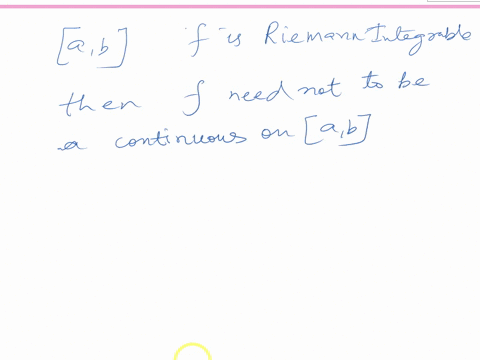 [a,b] f is Riemann Integrable
then f need not to be
a continuous on [a,b]